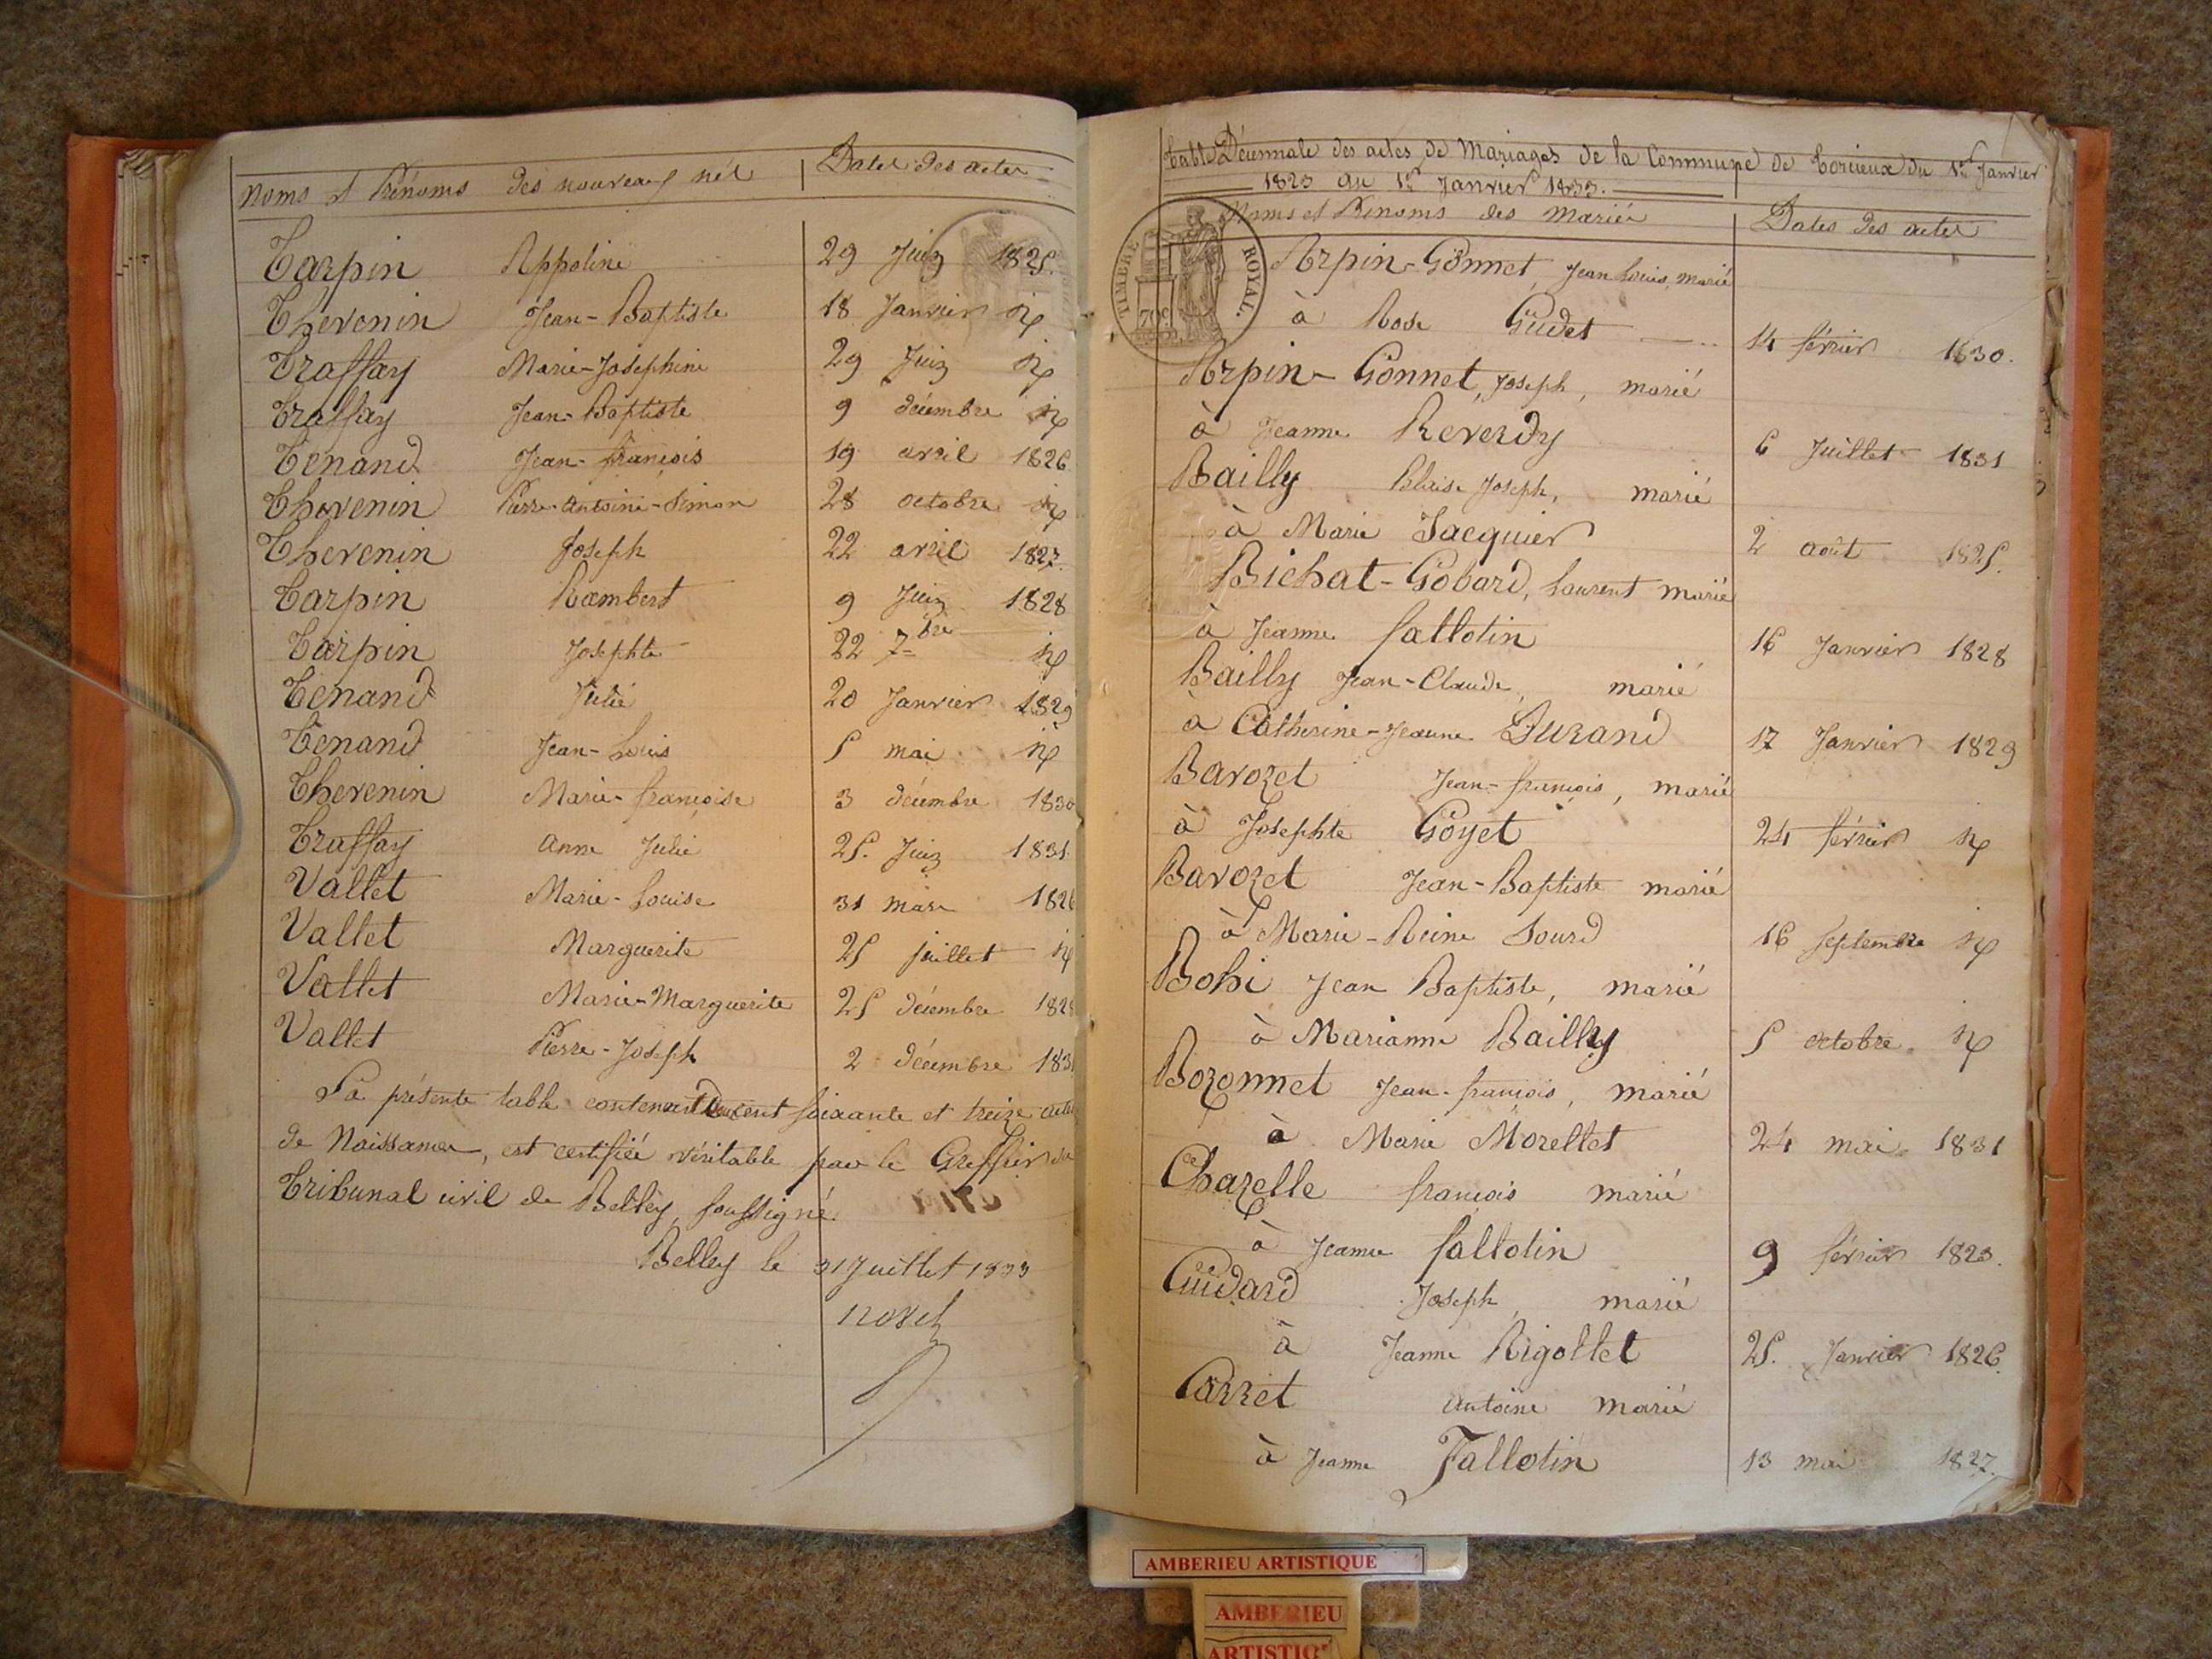 Noms et Prénoms des nouveaux nés Dates des actes
Tarpin Appoline 29 Juin 1825.
Thevenin Jean-Baptiste 18 Janvier id
Traffay Marie-Josephine 29 Juin id
Traffay Jean-Baptiste 9 décembre id
Tenand Jean-françois 19 avril 1826
Thevenin Pierre-Antoine-Simon 28 octobre id
Thevenin Joseph 22 avril 1827.
Tarpin Rambert 9 Juin 1828
Tarpin Josephte 22 7bre id
Tenand Julie 20 Janvier 1829
Tenand Jean-Louis 5 mai id
Thevenin Marie-françoise 3 décembre 1830
Traffay Anne Julie 25. Juin 1831.
Vallet Marie-Louise 31 mars 1826
Vallet Marguerite 25 juillet id
Vallet Marie-Marguerite 25 décembre 1828
Vallet Pierre-Joseph 2 décembre 183
La présente table contenant Deux cent soixante et treize actes
de Naissances, est certifiée véritable par le Greffier du
Tribunal civil de Belley, soussigné.
Belley le 31 Juillet 1833
Table Décennale des actes de Mariages de la Commune de Torcieux du 1er Janvier
1823 au 1er Janvier 1833.
Noms et Prénoms des mariés Dates des actes
TIMBRE ROYAL.
70c.
Arpin-Gonnet, Jean Louis, marié
à Rose Gudet 14 février 1830.
Arpin-Gonnet, Joseph, marié
à Jeanne Reverdy 6 Juillet 1831
Bailly Blaise Joseph, marié
à Marie Jacquier 2 août 1825.
Bichat-Gobard, Laurent marié
à Jeanne fallotin 16 Janvier 1828
Bailly Jean-Claude, marié
à Catherine-Jeanne Durand 17 Janvier 1829
Bavozet Jean-françois, marié
à Josephte Goyet 24 février id
Bavozet Jean-Baptiste marié
à Marie-Reine Sourd 16 septembre id
Bohi Jean Baptiste, marié
à Marianne Bailly 5 octobre id
Bozonnet Jean-françois, marié
à Marie Morellet 24 mai 1831
Chazelle françois marié
à Jeanne fallotin 9 février 1823.
Cuidard Joseph, marié
à Jeanne Rigollet 25. Janvier 1826.
Carret Antoine marié
à Jeanne Fallotin 13 mai 1827.
AMBERIEU ARTISTIQUE
AMBERIEU